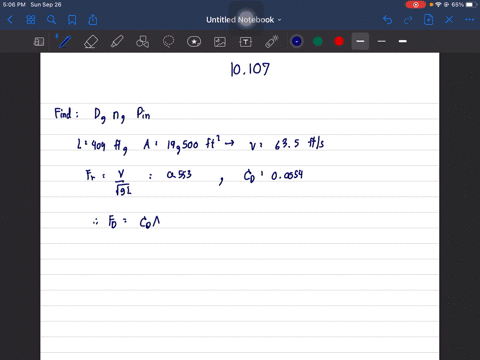 5:06 PM Sun Sep 26
65%
Untitled Notebook
10.107
Find: D, n, Pin
L = 409 ft, A = 19,500 ft² → V = 63.5 ft/s
Fr = V / √gL = 0.553, CD = 0.0054
∴ FD = CD A